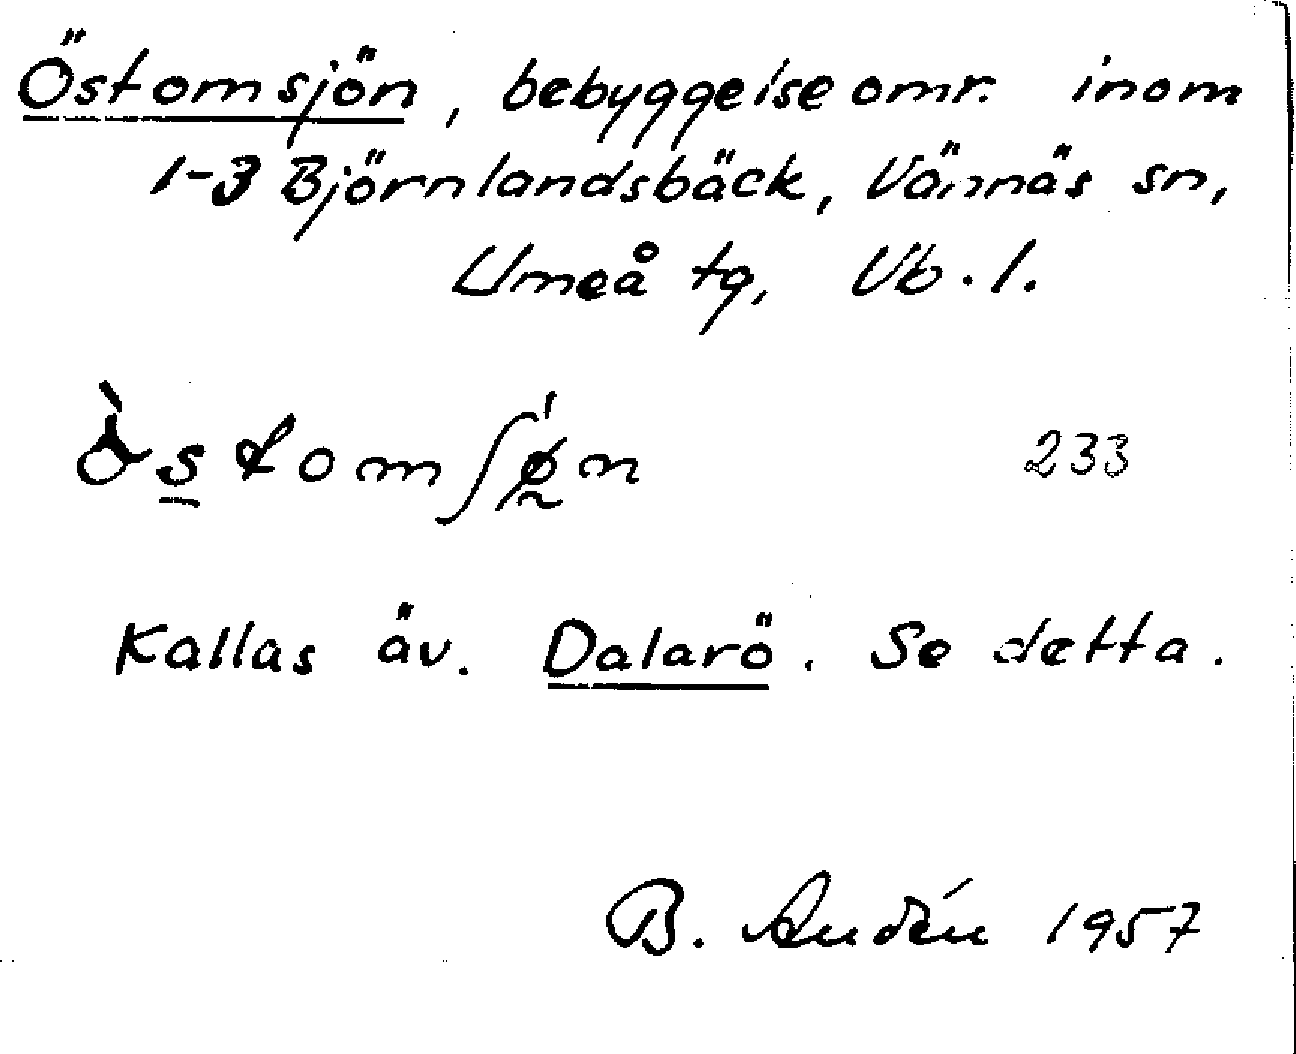 Östomsjön, bebyggelseomr. inom
1-3 Björnlandsbäck, Vännäs sn,
Umeå tg, Vb. l.
233
Kallas äv. Dalarö. Se detta.
B. Audén 1957